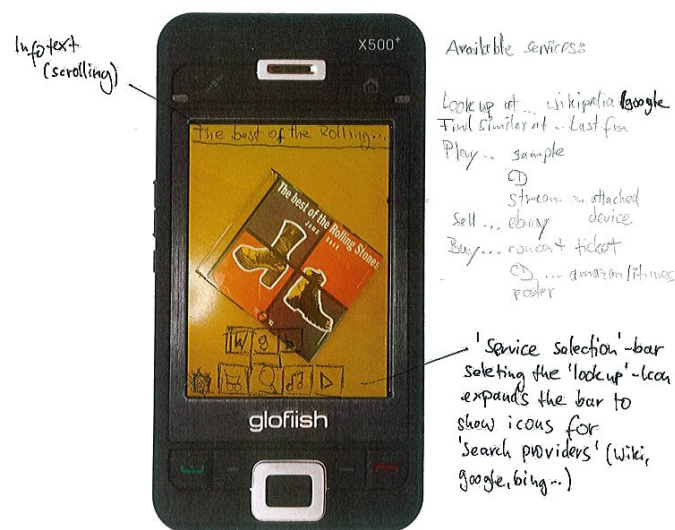 Infotext
(scrolling)
X500+
The best of the Rolling...
The best of the Rolling Stones
W g b
glofiish
Available services:
Look up at ... wikipedia/google
Find similar at ... Last fm
Play ... sample
CD
stream on attached
device
Sell ... ebay
Buy ... concert ticket
CD ... amazon/itunes
poster
'Service selection'-bar
seleting the 'lookup'-icon
expands the bar to
show icons for
'search providers' (Wiki,
google, bing...)